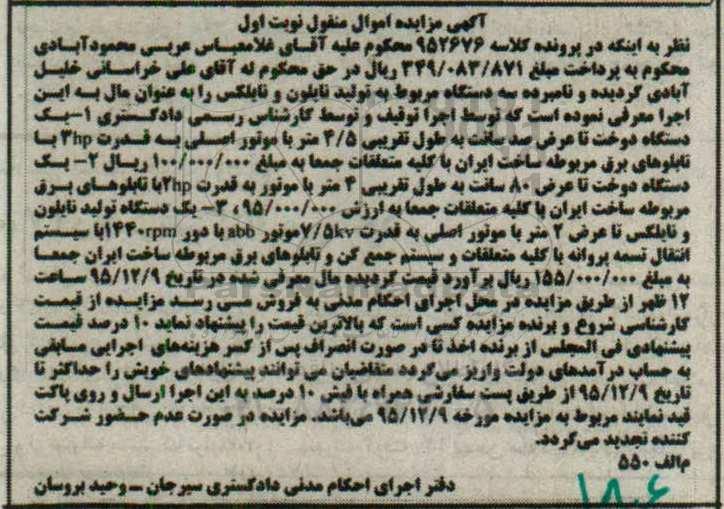 آگهی مزایده اموال منقول نوبت اول
نظر به اینکه در پرونده کلاسه ۹۵۲۶۷۶ محکوم علیه آقای غلامعباس عربی محمودآبادی
محکوم به پرداخت مبلغ ۳۴۹/۰۸۳/۸۷۱ ریال در حق محکوم له آقای علی خراسانی خلیل
آبادی گردیده و نامبرده سه دستگاه مربوط به تولید نایلون و نایلکس را به عنوان مال به این
اجرا معرفی نموده است که توسط اجرا توقیف و توسط کارشناس رسمی دادگستری ۱-یک
دستگاه دوخت تا عرض صد سانت به طول تقریبی ۴/۵ متر با موتور اصلی به قدرت ۳hp با
تابلوهای برق مربوطه ساخت ایران با کلیه متعلقات جمعا به مبلغ ۱۰۰/۰۰۰/۰۰۰ ریال ۲- یک
دستگاه دوخت تا عرض ۸۰ سانت به طول تقریبی ۴ متر با موتور به قدرت ۲hpبا تابلوهای برق
مربوطه ساخت ایران با کلیه متعلقات جمعا به ارزش ۹۵/۰۰۰/۰۰۰ ، ۳- یک دستگاه تولید نایلون
و نایلکس تا عرض ۲ متر با موتور اصلی به قدرت ۷/۵kvموتور abb با دور ۱۴۴۰rpmبا سیستم
انتقال تسمه پروانه با کلیه متعلقات و سیستم جمع کن و تابلوهای برق مربوطه ساخت ایران جمعا
به مبلغ ۱۵۵/۰۰۰/۰۰۰ ریال برآورد قیمت گردیده مال معرفی شده در تاریخ ۹۵/۱۲/۹ ساعت
۱۲ ظهر از طریق مزایده در محل اجرای احکام مدنی به فروش می رسد مزایده از قیمت
کارشناسی شروع و برنده مزایده کسی است که بالاترین قیمت را پیشنهاد نماید ۱۰ درصد قیمت
پیشنهادی فی المجلس از برنده اخذ تا در صورت انصراف پس از کسر هزینه‌های اجرایی مسابقی
به حساب درآمدهای دولت واریز می‌گردد متقاضیان می توانند پیشنهادهای خویش را حداکثر تا
تاریخ ۹۵/۱۲/۹ از طریق پست سفارشی همراه با فیش ۱۰ درصد به این اجرا ارسال و روی پاکت
قید نمایند مربوط به مزایده مورخه ۹۵/۱۲/۹ می‌باشد. مزایده در صورت عدم حضور شرکت
کننده تجدید می‌گردد.
م‌الف ۵۵۰
دفتر اجرای احکام مدنی دادگستری سیرجان – وحید بروسان
۱۸۰۶